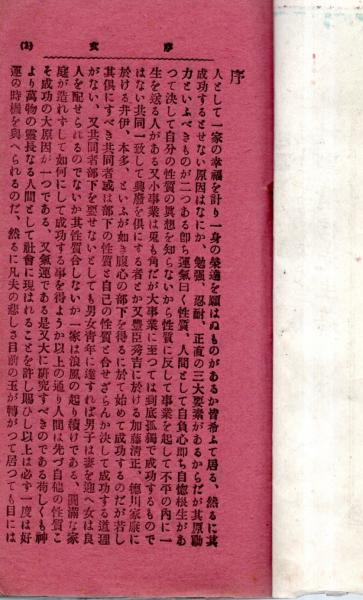 序文 (1)
序
人として一家の幸福を計り一身の榮達を願はぬものがあるか皆希ふて居る、然るに其
成功するとせない原因はなにか、勉强、忍耐、正直の三大要素があるからだが其原動
力といふべきものが二つある卽ち運氣曰く性質、人間として自負心卽ち自惚根生があ
つて決して自分の性質の眞想を知らないから性質に反して事業を起して不平の內に一
生を送る人がある又小事業は兎も角だが大事業に至つては到底孤獨で成功するもので
はない共同一致して興廢を俱にする者とか又豐臣秀吉に於ける加藤淸正、德川家康に
於ける井伊、本多、といふが如き腹心の部下を得るに於て始めて成功するのだが若し
其俱にすべき共同者或は部下の性質と自己の性質と合せざらんか決して成功する道理
がない、又共同者部下を要せないとしても男女靑年に達すれば男子は妻を迎へ女は良
人を配せられるのでないか其性質合しないか一家は浪風の起り續けである、圓滿な家
庭が造れずして如何にして成功する事を得ようか以上の通り人間は先づ自他の性質こ
そ成功の大原因が一つである、又氣運である是又大に硏究すべきのである苟しくも神
より萬物の靈長なる人間として社會に現はれることを許し賜ひし以上は必ず一度は好
運の時機を與へられるのだ、然るに凡夫の悲しさ目前の玉が轉がつて居つても目には